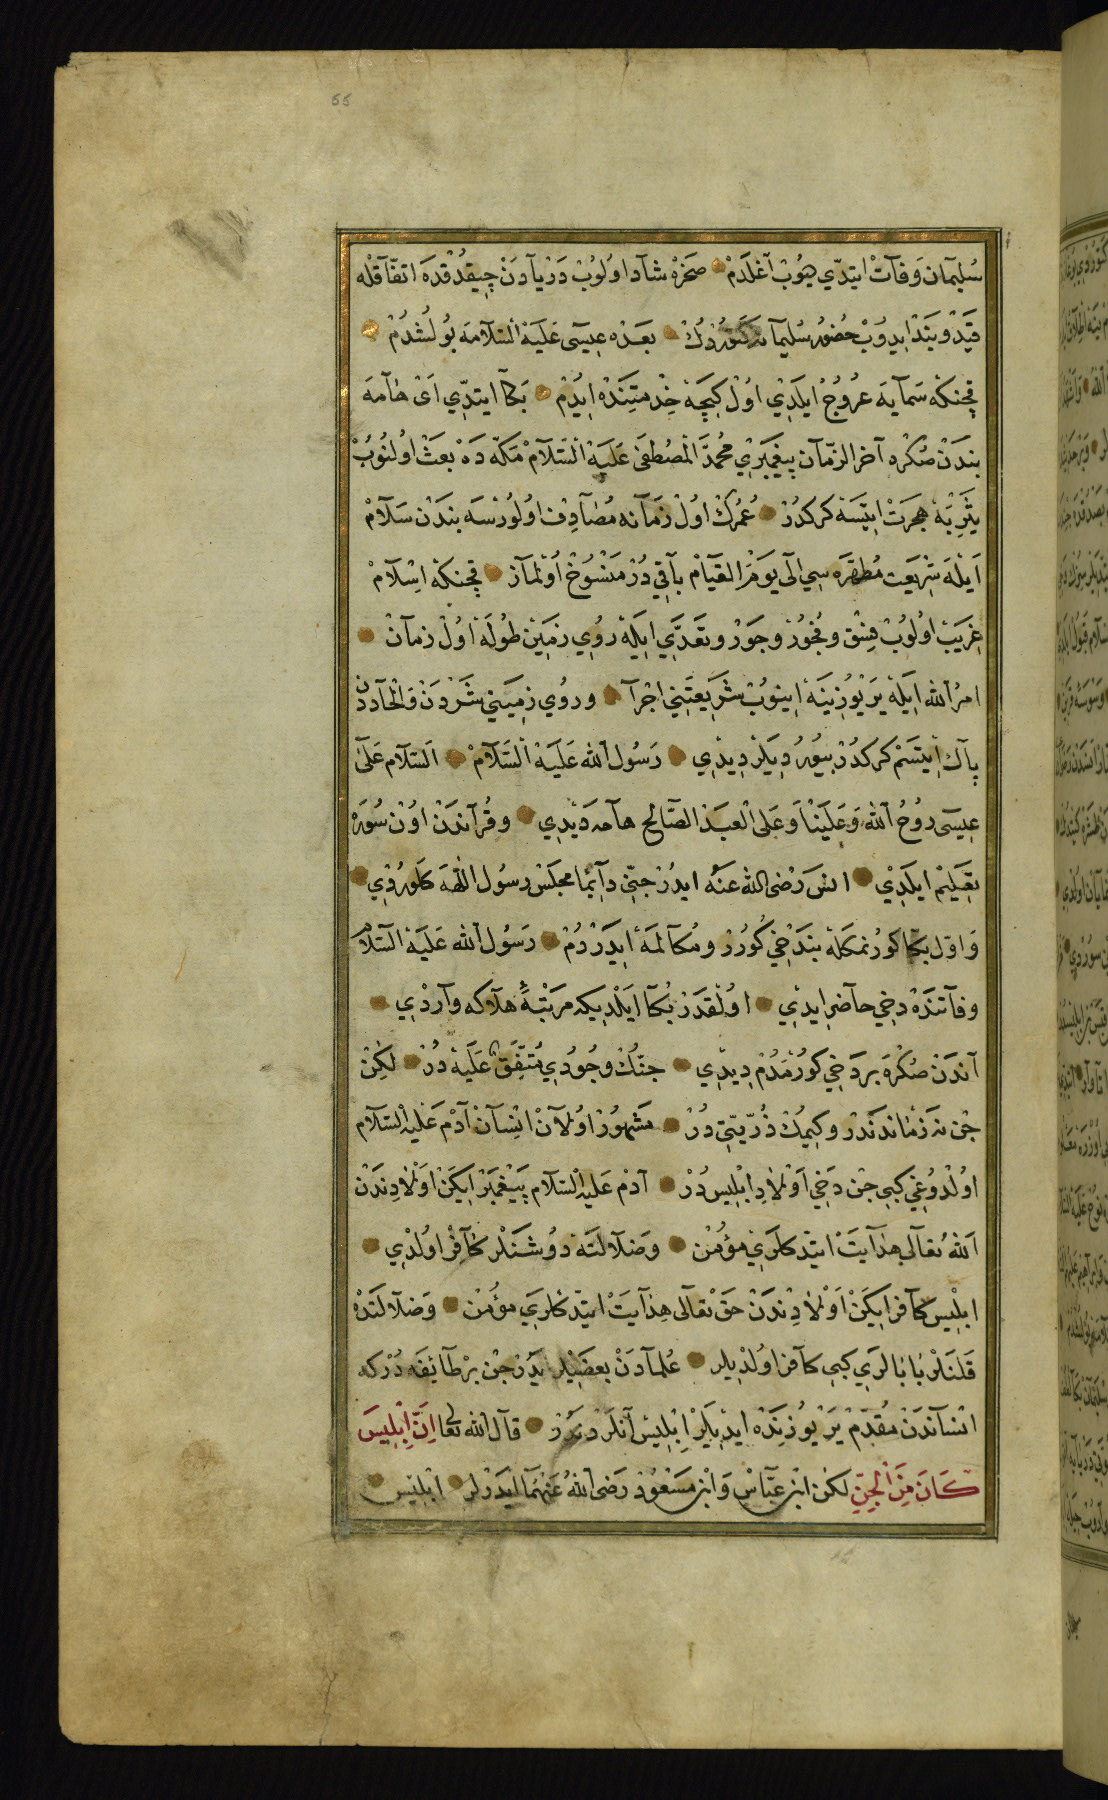 55
سُلیمان وَفَاتْ ایتدّي هیوُبْ آغلَدَمْ صَخْرَهْ شاد اوُلوُبْ دَرْیادَنْ چِیقدُقدَه اتفّاقله
قَیْدْ و بَنْدْ ایدوُبْ حضور سُلیمانه کَتوُردُكْ بعدَه عِیسَی عَلَیْهْ السَّلامَه بوُلُشدُمْ
قچنکه سَمایَه عُروُجْ ایلَدِي اوُلْ کیجَه خِذْمتِنَدْه ایدِمْ بَکا ایتدّي اَیْ هامَه
بندَنْ صُکْره آخر الزّمان پیغمبَرِي مُحمدَّ الْمصُطفَی عَلَیْهْ السَّلامْ مَکّه دَه بعَثْ اوُلنُوبْ
یَثْرِبَه هِجرَتْ ایتسَه کرکدُرْ عُمْرُكْ اوُلْ زَمانه مُصادِف اوُلوُرسَه بندَنْ سَلامْ
اَیْلَه شرِیعَت مُطهَّرَه سِي الَی یَوْمْ القیامْ باقِي دُرْ مَنْسُوُخْ اوُلْمازْ قچنکه اِسْلامْ
غَریبْ اوُلوُبْ فِسْق و فُجوُرْ و جَوْرْ و تعَدِّي ایلَه روُي زمَینْ طوُلَه اوُلْ زمانْ
امرُ اللّٰه ایلَه یَرْ یوُزِینَه اِینوُبْ شَرِیعتِنی اجْرا و روُي زمِینی شَرْدَن وَالْحاددَن
پاك ایتسَمْ کرکدُرْ بیوُردِیلَرْ دِیدِي رَسُول اللّٰه عَلَیْهْ السَّلامْ اَلسَّلام عَلَی
عِیسَی روُحُ اللّٰه وَعَلَیْنَا وَعَلَی الْعَبْدِ الصَّالح هامه دَیْدِي و قُراندَنْ اوُنْ سُورَه
تَعْلِیْم ایلَدِي انَس رَضیَ اللّٰه عنْه ایدُرْ جنّی دآئما مجلسْ رسُول اللّٰهَه کلوُردي
وَاوّل بکا کورُنمکلَه بندَخِي کوُرُرْ و مُکالمَه ایدَرْدُمْ رَسُول اللّٰه عَلَیْهْ السَّلام
وفاتندَه دخِي حاضر ایدِي اوُلْقدَرْ بُکا ایلَدیکه مرَتبَهٔ هلاکه واردِي
آندَنْ صُکْرَه بردَخِي کورُمَدُمْ دِیدِي جنُّكْ وجُودِي مُتفّق عَلَیْهْ دُرْ لکِنْ
جن نه زمَاندندَر وکیمُكْ ذُرّیّتی دُرْ مَشهوُرْ اوُلان انْسانْ آدَمْ عَلیْه السَّلام
اوُلْدوُغي کبي جن دَخِي اوَلادِ ابْلِیس دُرْ آدَم عَلیْه السَّلام پَیْغمَبَرْ ایکَنْ اوَلادِندَنْ
اللّٰه تعَالی هِدایَتْ ایتدّکلرَي مؤْمن وَضَلالتَه دوُشنَلر کافرْ اوُلْدِي
ابلْیس کافر ایکَنْ اوَلادِندَنْ حَقْ تعَالی هِدایَتْ ایتدّکلرَي مؤُمنْ وَضلالَتدَه
قَلنَلْر بابالرَي کبي کافر اوُلدیلر عُلَمادَنْ بعَضیِلر ایدَرْ جن بِرْ طائفه دُرْکه
انْساندَنْ مقُدَّمْ یَرْ یوُزِندَه ایدیلَرْ ابْلیس آنلَردندَرْ قالَ اللّٰه تعالی اِنَّ اِبْلِیسَ
کَانَ مِنَ الْجِنِّ لکن ابْن عَبّاس وَابْن مَسْعُوُدْ رَضیَ اللّٰهُ عَنْهُمَا ایدَرْلر ابْلیْس